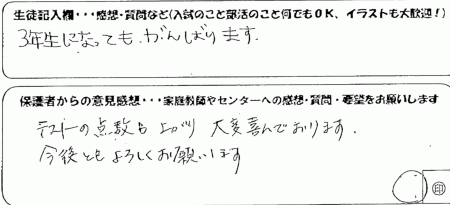 生徒記入欄・・・感想・質問など(入試のこと部活のこと何でもOK、イラストも大歓迎！)
3年生になっても がんばります.
保護者からの意見感想・・・家庭教師やセンターへの感想・質問・要望をお願いします
テストの点数も上がり 大変喜んでおります.
今後ともよろしくお願いします
印